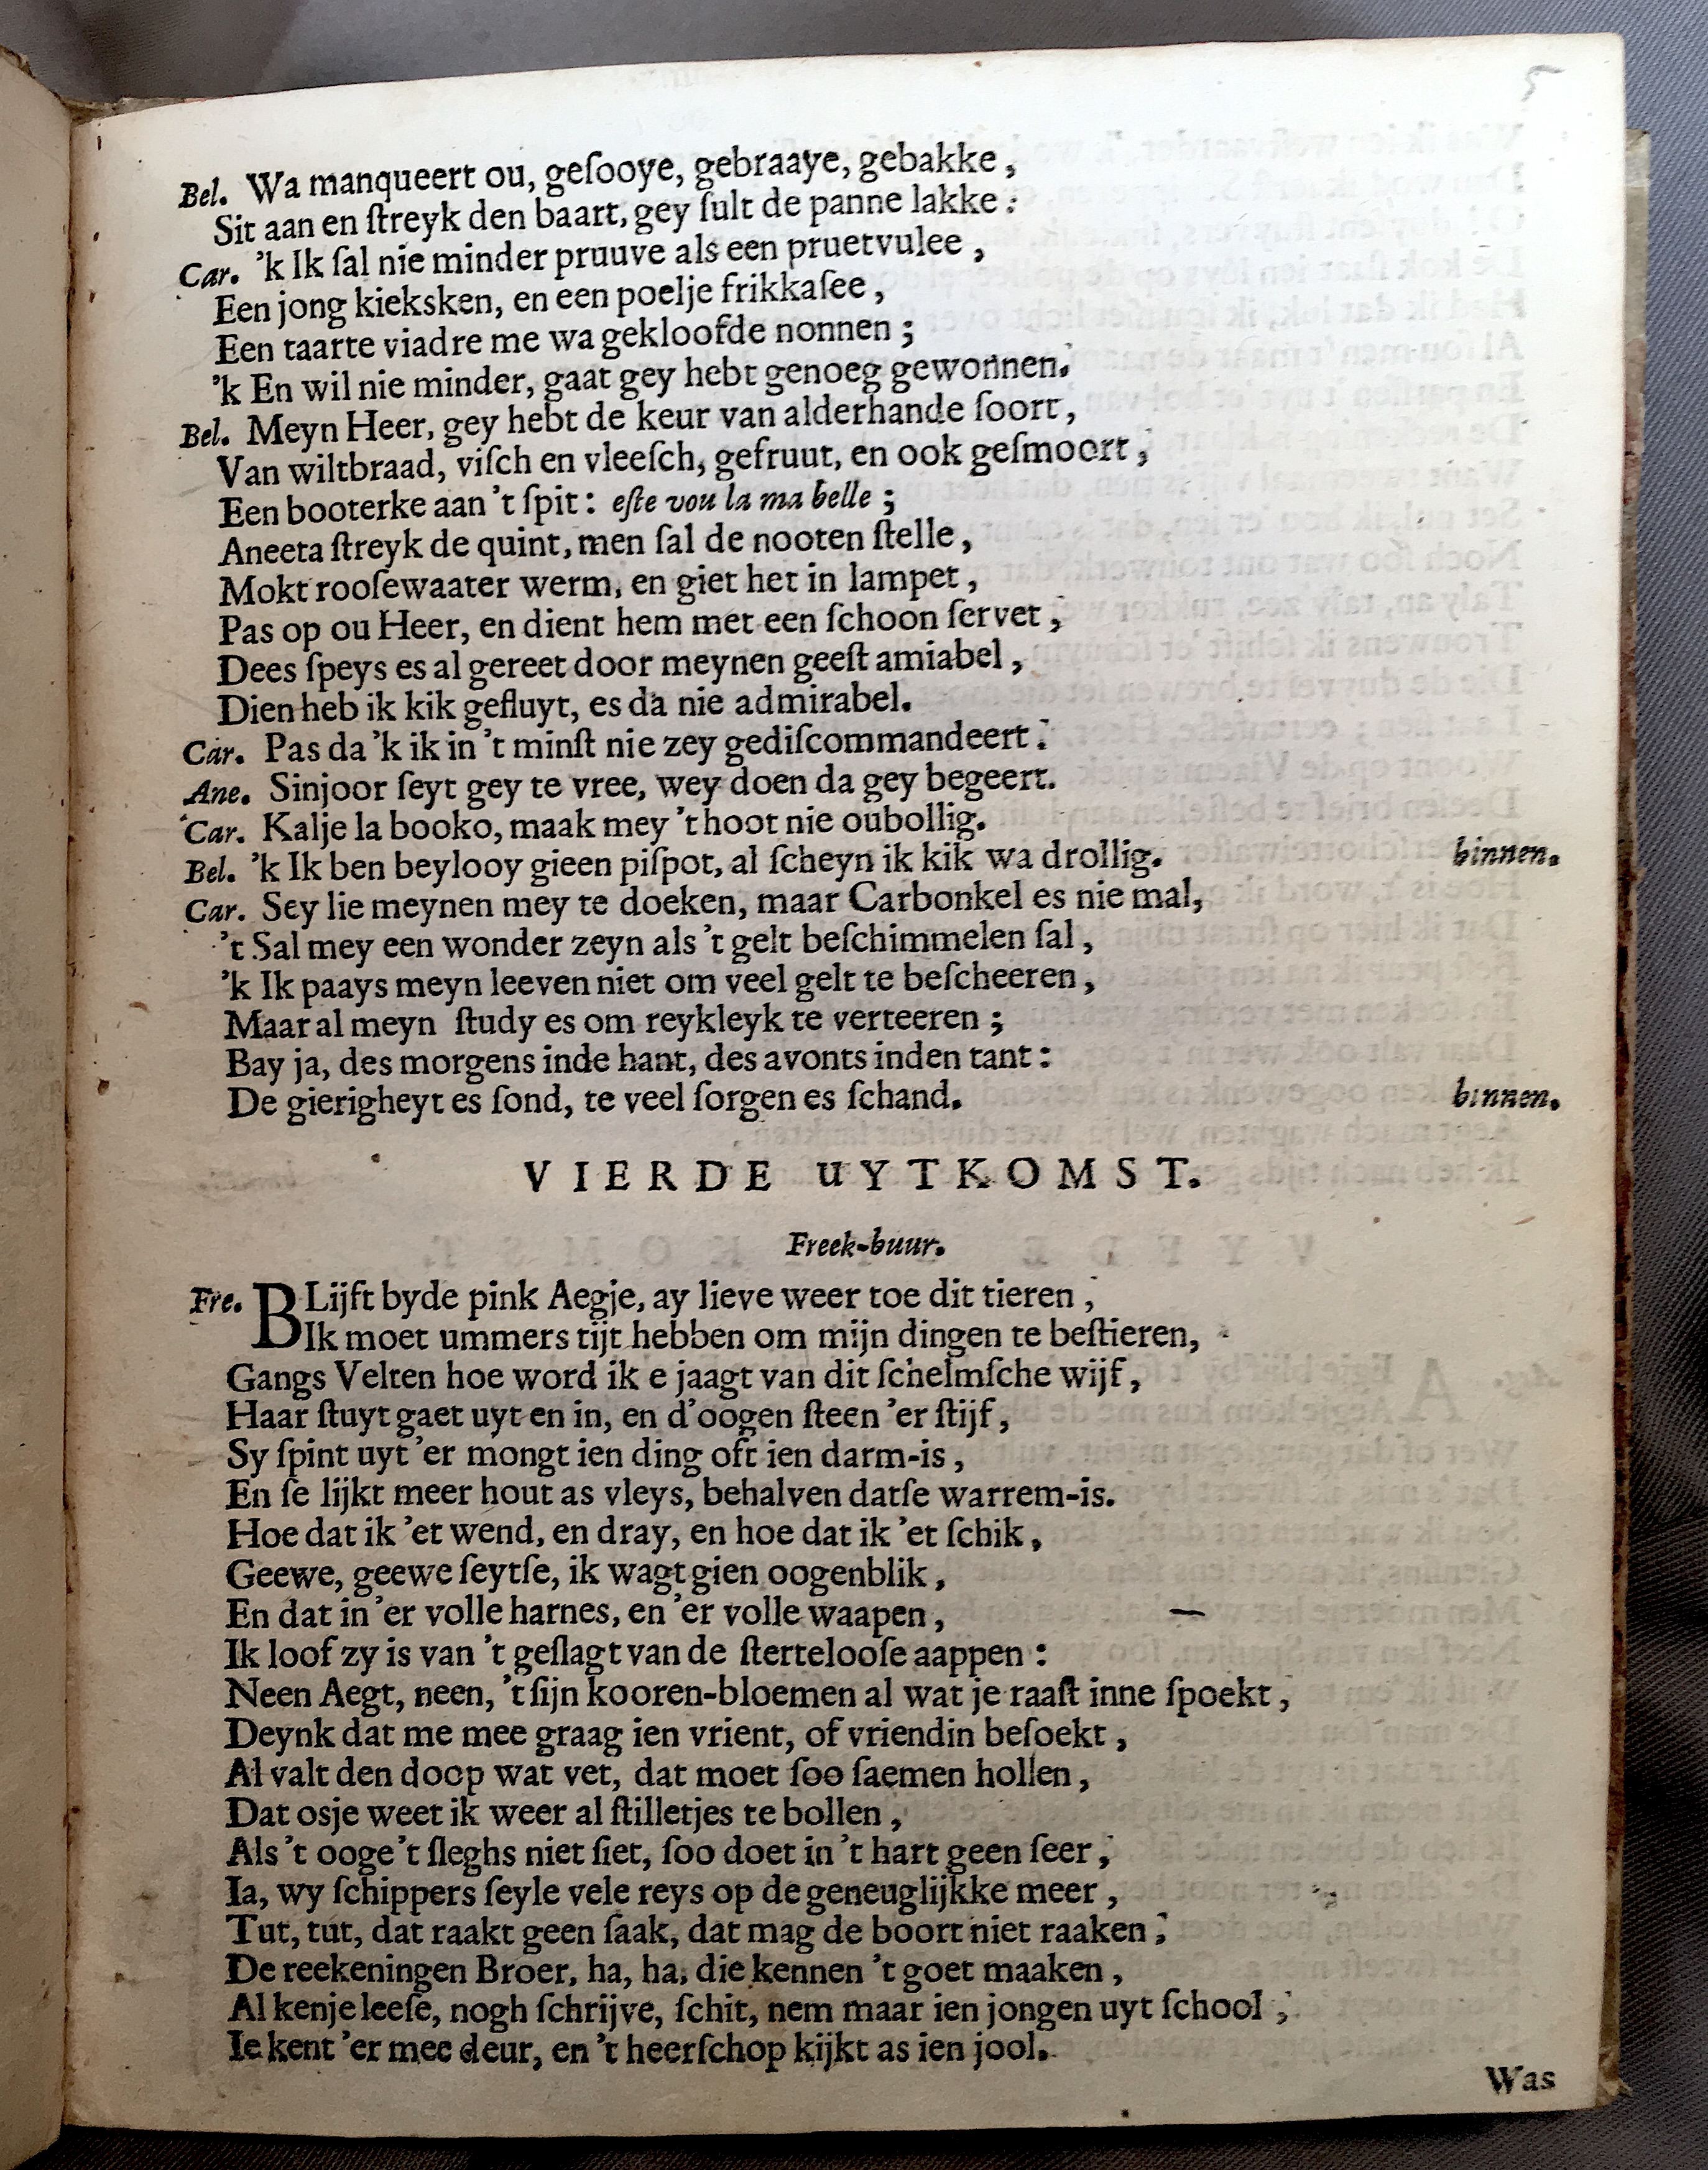 5
Bel. Wa manqueert ou, geſooye, gebraaye, gebakke,
Sit aan en ſtreyk den baart, gey ſult de panne lakke:
Car. 'k Ik ſal nie minder pruuve als een pruetvulee,
Een jong kieksken, en een poelje frikkaſee,
Een taarte viadre me wa gekloofde nonnen;
'k En wil nie minder, gaat gey hebt genoeg gewonnen.
Bel. Meyn Heer, gey hebt de keur van alderhande ſoort,
Van wiltbraad, viſch en vleeſch, gefruut, en ook geſmoort,
Een booterke aan 't ſpit: eſte vou la ma belle;
Aneeta ſtreyk de quint, men ſal de nooten ſtelle,
Mokt rooſewaater werm, en giet het in lampet,
Pas op ou Heer, en dient hem met een ſchoon ſervet,
Dees ſpeys es al gereet door meynen geeſt amiabel,
Dien heb ik kik gefluyt, es da nie admirabel.
Car. Pas da 'k ik in 't minſt nie zey gediſcommandeert.
Ane. Sinjoor ſeyt gey te vree, wey doen da gey begeert.
Car. Kalje la booko, maak mey 't hoot nie oubollig.
Bel. 'k Ik ben beylooy gieen piſpot, al ſcheyn ik kik wa drollig. binnen.
Car. Sey lie meynen mey te doeken, maar Carbonkel es nie mal,
't Sal mey een wonder zeyn als 't gelt beſchimmelen ſal,
'k Ik paays meyn leeven niet om veel gelt te beſcheeren,
Maar al meyn ſtudy es om reykleyk te verteeren;
Bay ja, des morgens inde hant, des avonts inden tant:
De gierigheyt es ſond, te veel ſorgen es ſchand. binnen.
VIERDE UYTKOMST.
Freek-buur.
Fre. BLijft byde pink Aegje, ay lieve weer toe dit tieren,
Ik moet ummers tijt hebben om mijn dingen te beſtieren,
Gangs Velten hoe word ik e jaagt van dit ſchelmſche wijf,
Haar ſtuyt gaet uyt en in, en d'oogen ſteen 'er ſtijf,
Sy ſpint uyt 'er mongt ien ding oft ien darm-is,
En ſe lijkt meer hout as vleys, behalven datſe warrem-is.
Hoe dat ik 'et wend, en dray, en hoe dat ik 'et ſchik,
Geewe, geewe ſeytſe, ik wagt gien oogenblik,
En dat in 'er volle harnes, en 'er volle waapen,
Ik loof zy is van 't geſlagt van de ſterteloоſe aappen:
Neen Aegt, neen, 't ſijn kooren-bloemen al wat je raaſt inne ſpoekt,
Deynk dat me mee graag ien vrient, of vriendin beſoekt,
Al valt den doop wat vet, dat moet ſoo ſaemen hollen,
Dat osje weet ik weer al ſtilletjes te bollen,
Als 't ooge 't ſleghs niet ſiet, ſoo doet in 't hart geen ſeer,
Ia, wy ſchippers ſeyle vele reys op de geneuglijkke meer,
Tut, tut, dat raakt geen ſaak, dat mag de boort niet raaken,
De reekeningen Broer, ha, ha, die kennen 't goet maaken,
Al kenje leeſe, nogh ſchrijve, ſchit, nem maar ien jongen uyt ſchool,
Ie kent 'er mee deur, en 't heerſchop kijkt as ien jool.
Was